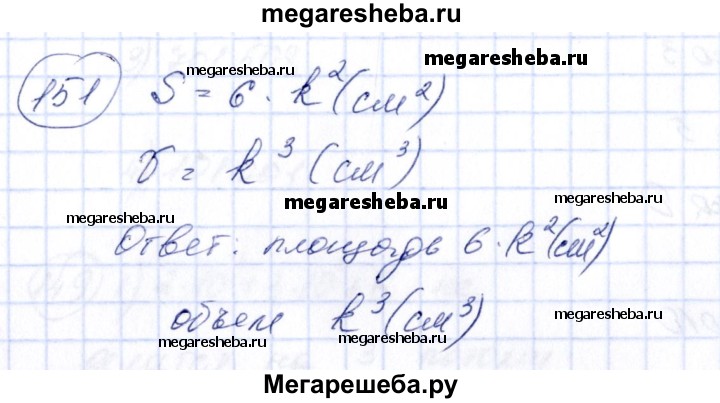 megaresheba.ru
151 S = 6 · k²(см²)
megaresheba.ru megaresheba.ru
V = k³ (см³)
megaresheba.ru megaresheba.ru
megaresheba.ru
Ответ: площадь 6 · k²(см²)
объем k³(см³)
megaresheba.ru megaresheba.ru
Мегарешеба.ру